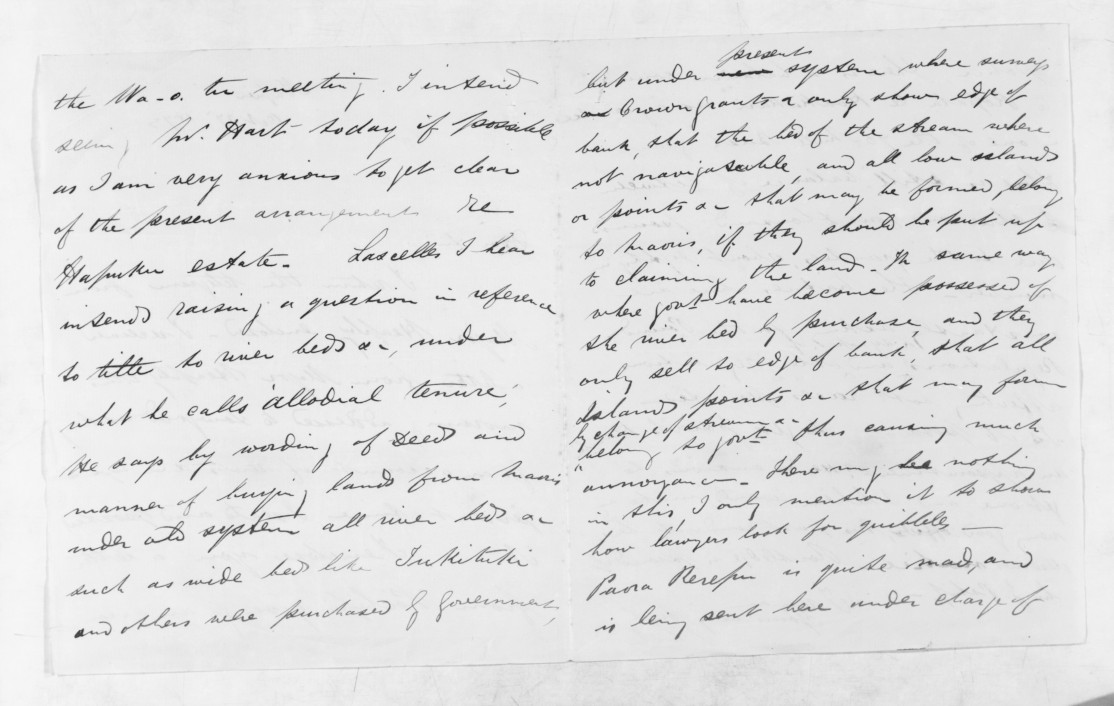 the Wa-o. te meeting. I intend
seeing Mr. Hart today if possible
as I am very anxious to get clear
of the present arrangements re
Hapuku estate - Lascelles I hear
intends raising a question in reference
to title to river beds &c, under
what he calls 'allodial tenure',
He says by wording of Deeds and
manner of buying lands from Maoris
under old system all river beds &c
such as wide beds like Tukituki
and others were purchased by Government,
but under present system where surveys
Crown grants &c only show edge of
bank, that the bed of the stream where
not navigatable, and all low islands
or points &c that may be formed, belong
to Maoris, if they should be put up
to claiming the land - In same way
where govt have become possessed of
the river bed by purchase, and they
only sell to edge of bank, that all
Islands, points &c that may form
by change of streams &c
belong to govt thus causing much
annoyance - There may be nothing
in this, I only mention it to show
how lawyers look for quibbles -
Paora Rerepu is quite mad, and
is being sent here under charge of